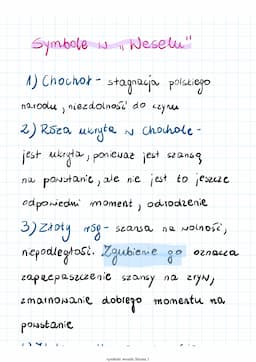 Symbole w „Weselu"
1) Chochoł - stagnacja polskiego
narodu, niezdolność do czynu
2) Róża ukryta w Chochole -
jest ukryta, ponieważ jest szansą
na powstanie, ale nie jest to jeszcze
odpowiedni moment, odrodzenie
3) Złoty róg - szansa na wolność,
niepodległość. Zgubienie go oznacza
zaprzepaszczenie szansy na zryw,
zmarnowanie dobrego momentu na
powstanie